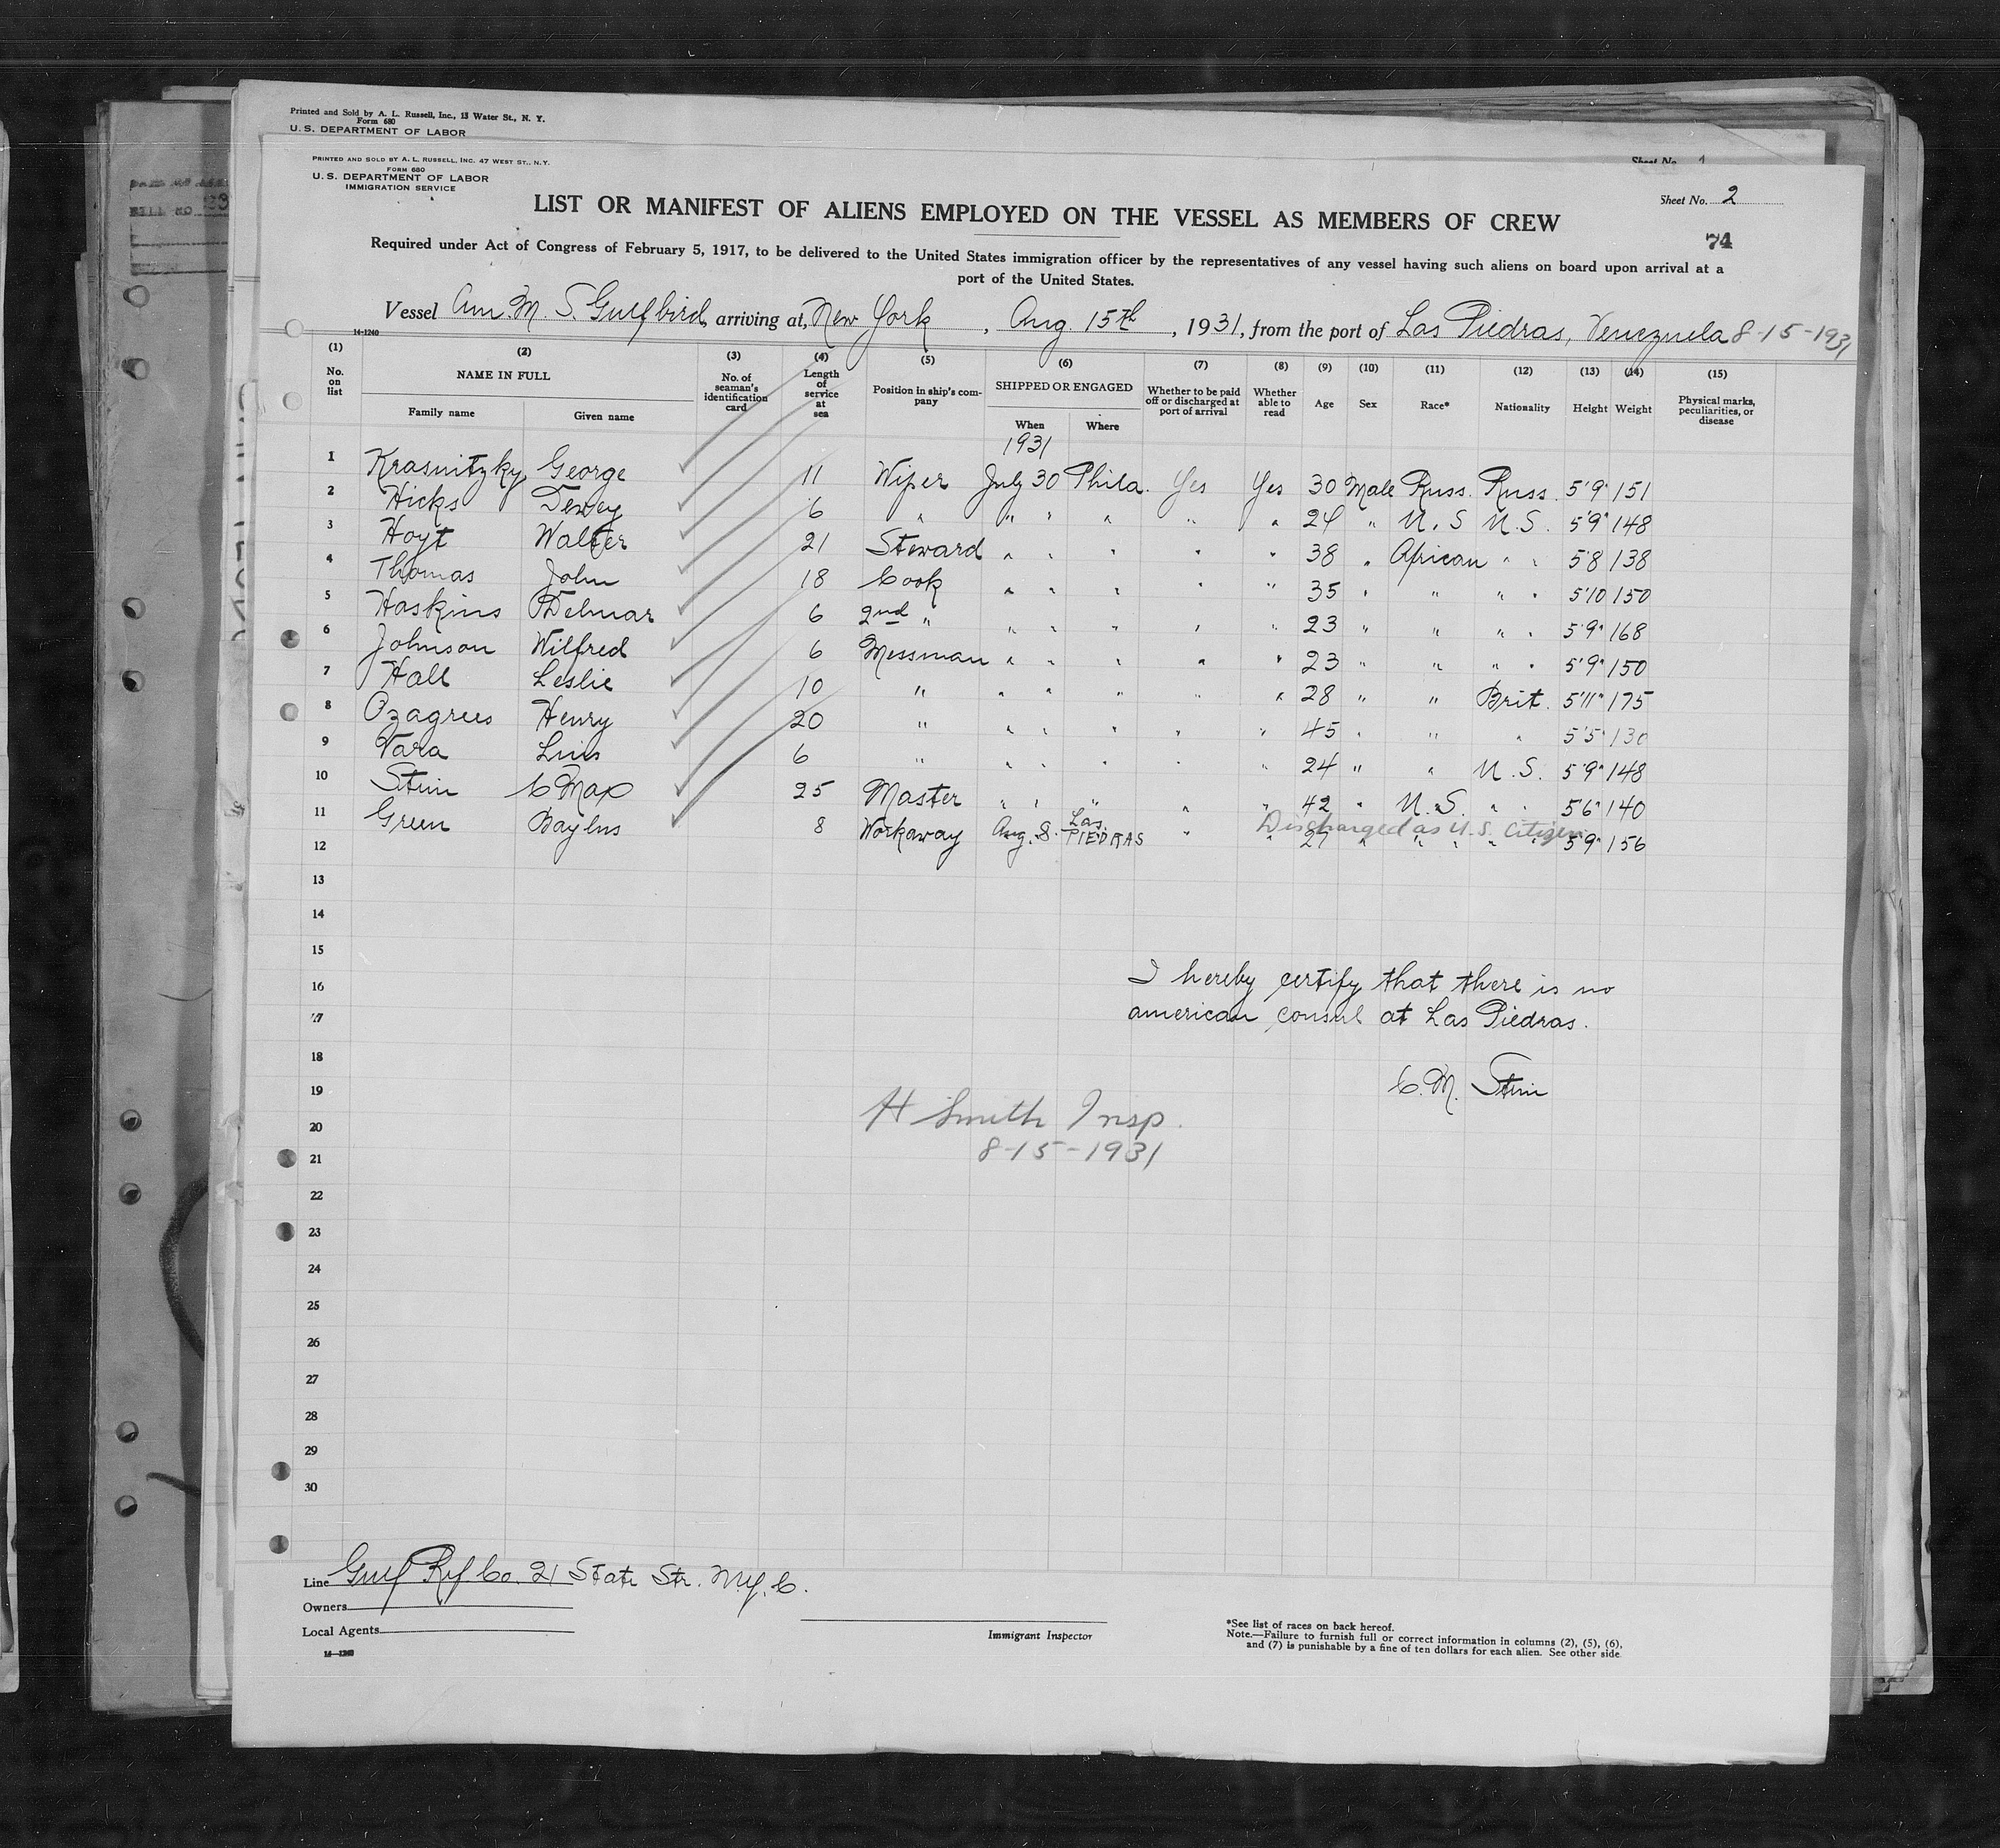 Printed and Sold by A. L. Russell, Inc., 13 Water St., N. Y.
Form 680
U. S. DEPARTMENT OF LABOR
Sheet No. 1
PRINTED AND SOLD BY A. L. RUSSELL, INC. 47 WEST ST., N.Y.
FORM 680
U. S. DEPARTMENT OF LABOR
IMMIGRATION SERVICE
Sheet No. 2
LIST OR MANIFEST OF ALIENS EMPLOYED ON THE VESSEL AS MEMBERS OF CREW
74
Required under Act of Congress of February 5, 1917, to be delivered to the United States immigration officer by the representatives of any vessel having such aliens on board upon arrival at a
port of the United States.
Vessel Am. M. S. Gulfbird, arriving at, New York, Aug. 15th, 1931, from the port of Las Piedras, Venezuela 8-15-1931
14-1240
(1) (2) (3) (4) (5) (6) (7) (8) (9) (10) (11) (12) (13) (14) (15)
No. on list NAME IN FULL No. of seaman's identification card Length of service at sea Position in ship's company SHIPPED OR ENGAGED Whether to be paid off or discharged at port of arrival Whether able to read Age Sex Race* Nationality Height Weight Physical marks, peculiarities, or disease
Family name Given name When Where
1931
1 Krasnitzky George 11 Wiper July 30 Phila. Yes Yes 30 Male Russ. Russ. 5'9" 151
2 Hicks Dewey 6 " " " " " " 24 " U.S U.S. 5'9" 148
3 Hoyt Walter 21 Steward " " " " " 38 " African " " 5'8 138
4 Thomas John 18 Cook " " " " " 35 " " " " 5'10 150
5 Haskins Delmar 6 2nd " " " " " " 23 " " " " 5'9" 168
6 Johnson Wilfred 6 Messman " " " " " 23 " " " " 5'9" 150
7 Hall Leslie 10 " " " " " " 28 " " Brit. 5'11" 175
8 Ozagrees Henry 20 " " " " " " 45 " " " 5'5" 130
9 Vara Luis 6 " " " " " " 24 " " U.S. 5'9" 148
10 Stein C Max 25 Master " " " " " 42 " U.S. " " 5'6" 140
11 Green Baylus 8 Workaway Aug. 8. Las PIEDRAS " " 27 " " " " " 5'9" 156
Discharged as U.S. Citizen
12
13
14
15
16
17
18
19
20
21
22
23
24
25
26
27
28
29
30
I hereby certify that there is no
american consul at Las Piedras.
C. M. Stein
H Smith Insp.
8-15-1931
Line Gulf Ref Co. 21 State Str. N.Y.C.
Owners
Local Agents
14-1240
Immigrant Inspector
*See list of races on back hereof.
Note.—Failure to furnish full or correct information in columns (2), (5), (6),
and (7) is punishable by a fine of ten dollars for each alien. See other side.